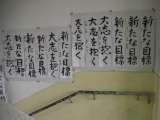 新たな目標
新たな目標
新たな目標
大志を抱く
大志を抱く
大志を抱く
新たな目標
大志を抱く